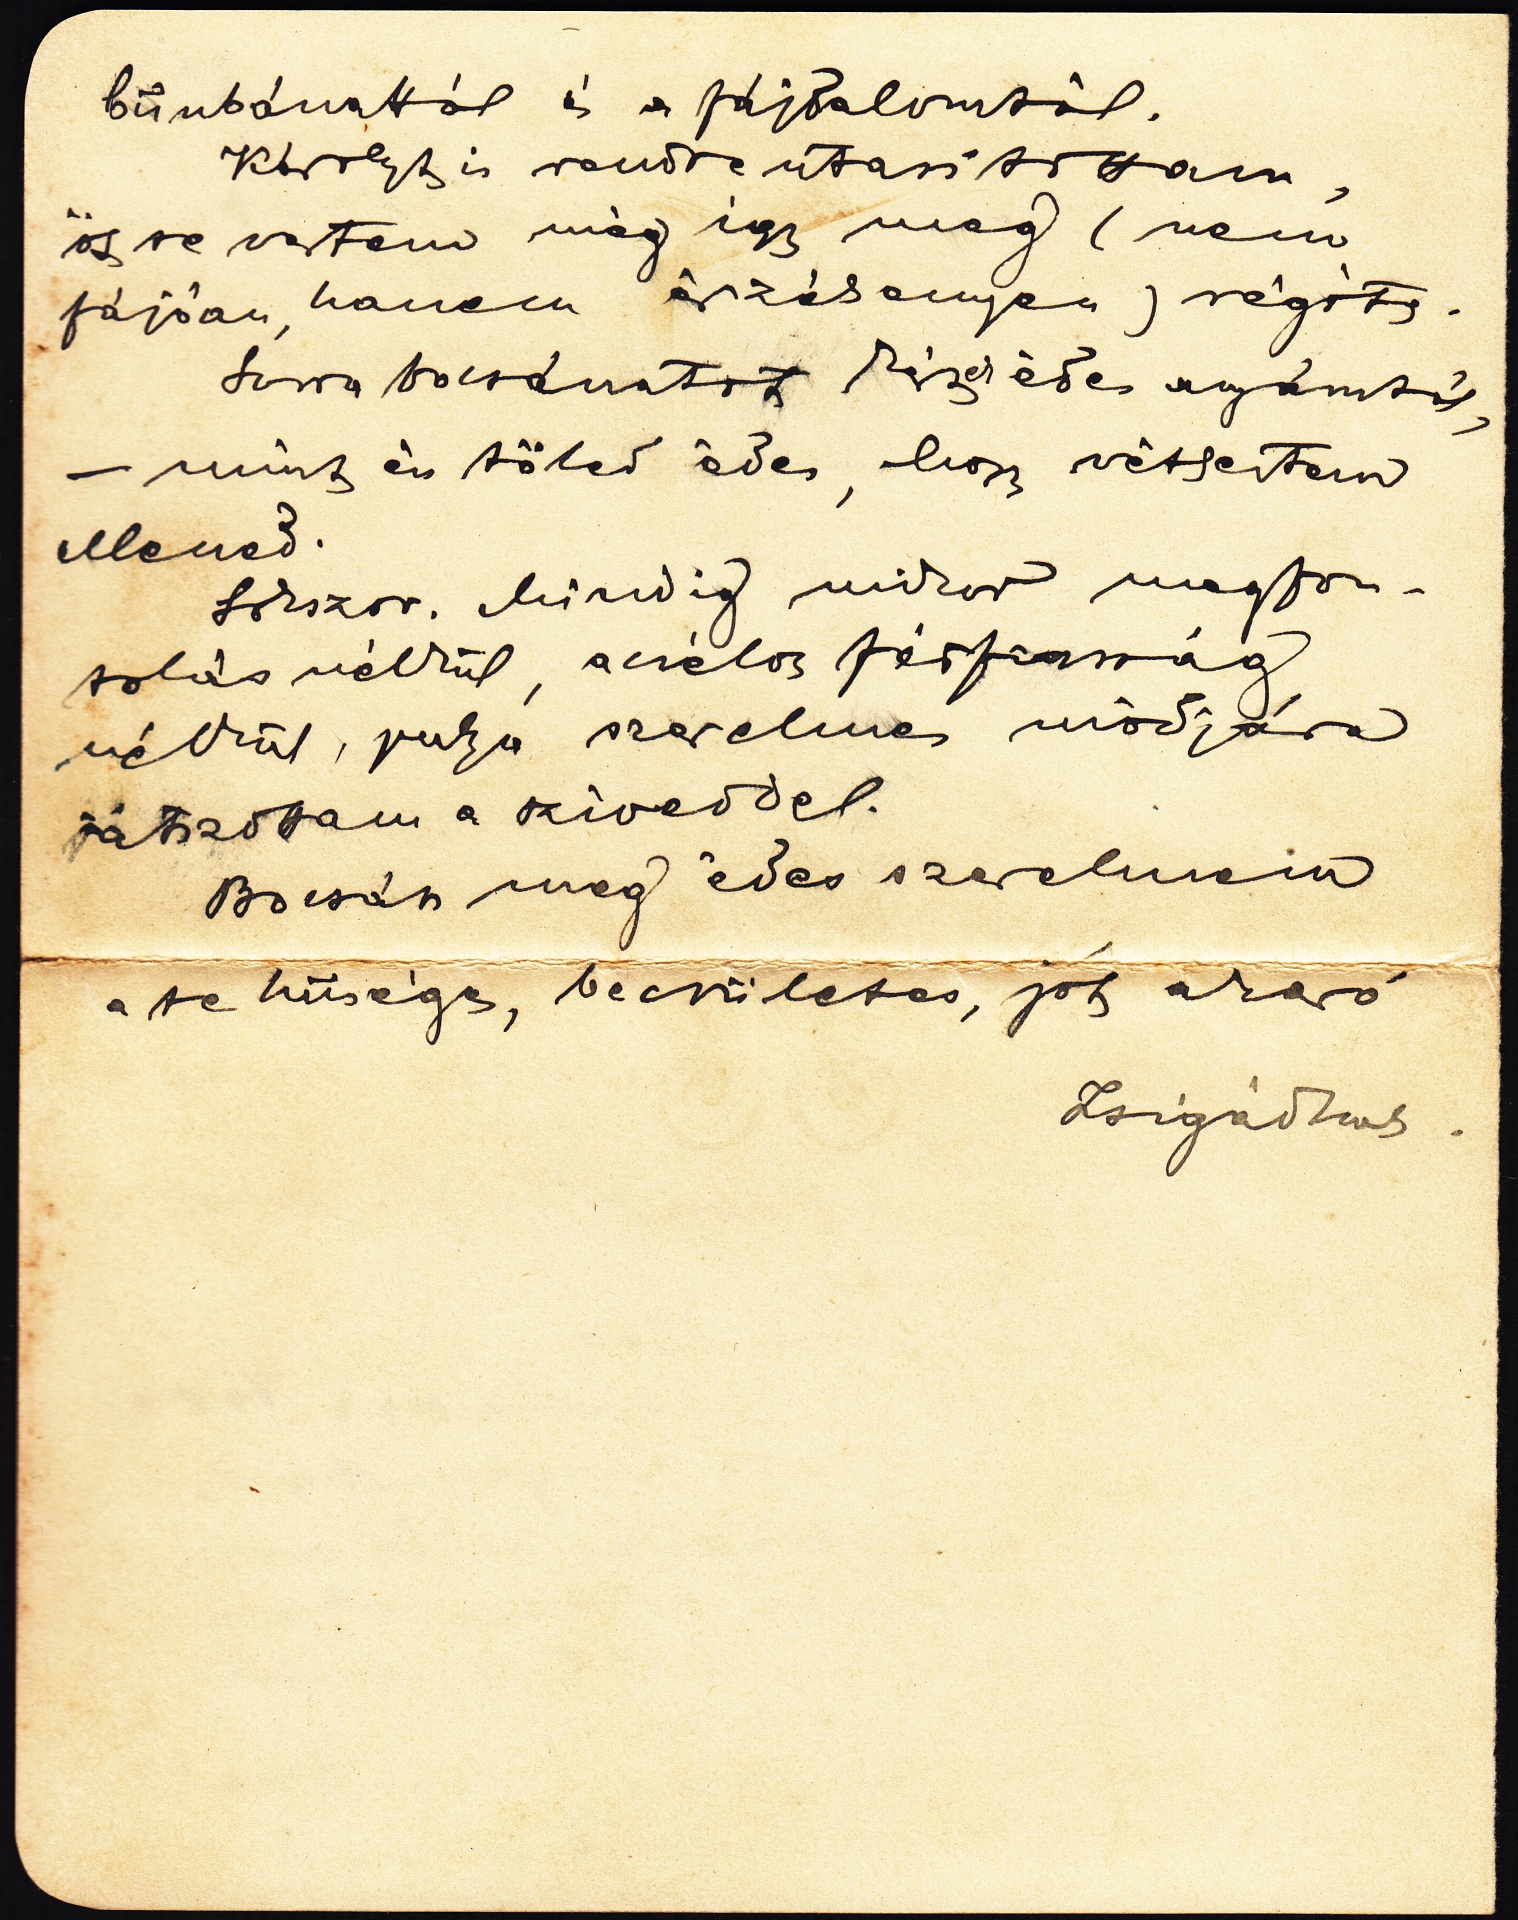 bűnbánattól és a fájdalomtól.
Károlyt is rendreutasitottam,
őt se vertem még igy meg (nem
fájóan, hanem érzékenyen) régóta.
bocsánatot édes anyámtól,
– mint én tőled édes, hogy
ellened.
Sokszor. Mindig mikor megfon-
tolás nélkül, acélos férfiasság
nélkül, puha szerelmes módjára
játszottam a sziveddel.
Bocsáss meg édes szerelmem
a te hűséges, becsületes, jót akaró
Zsigádnak.